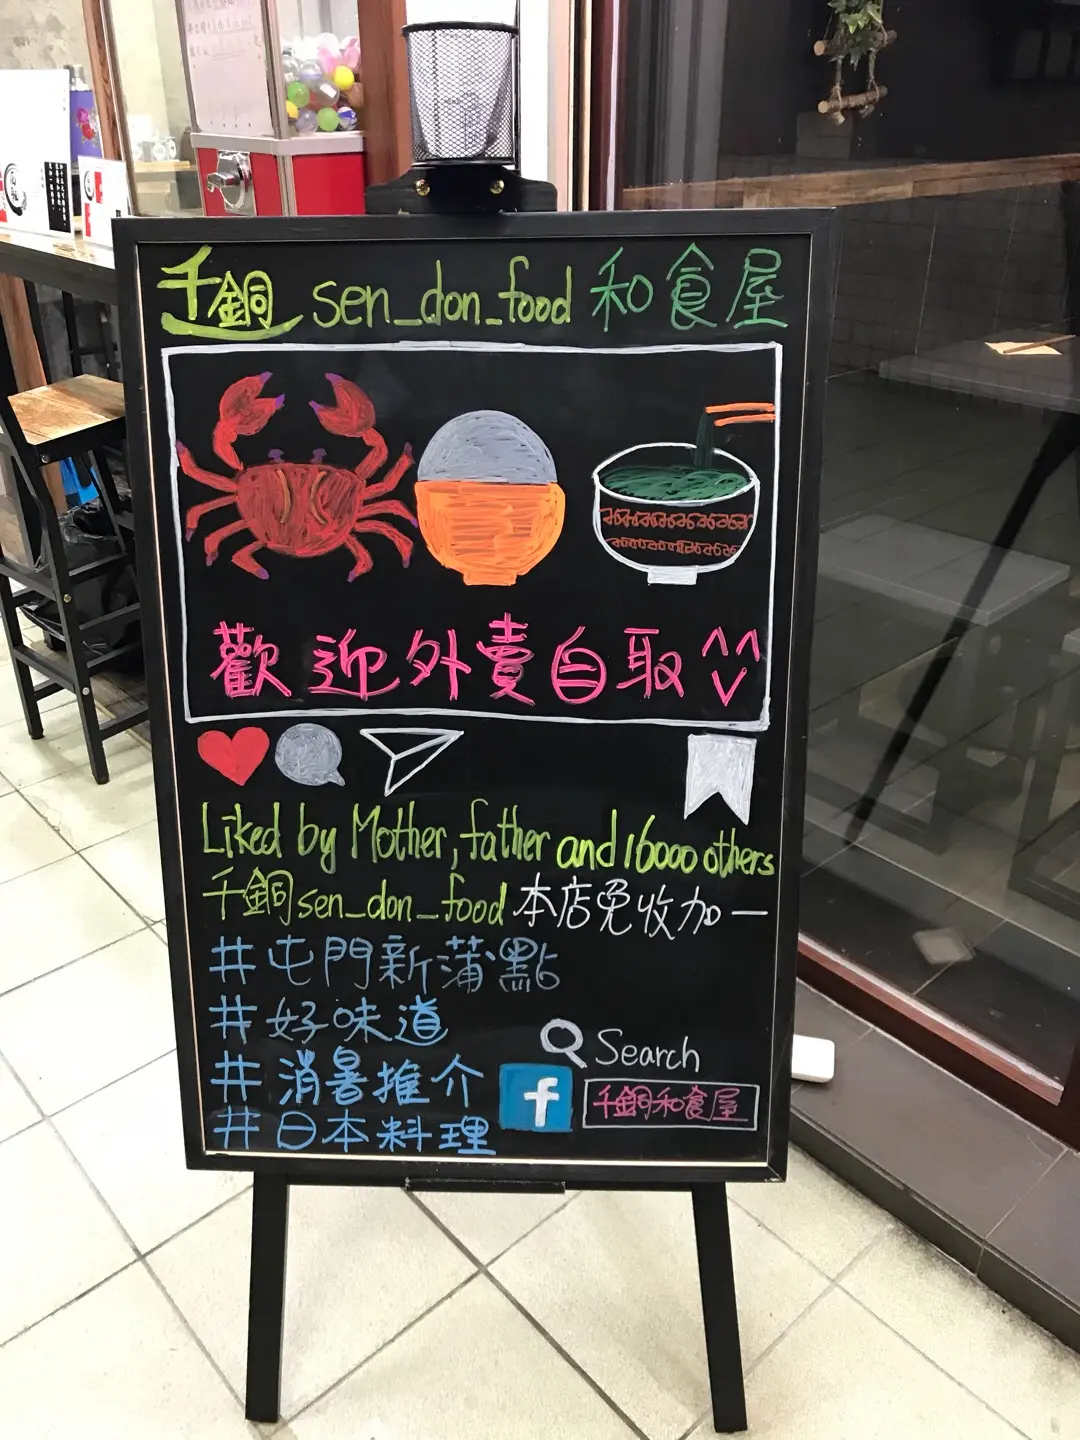 千銅 sen_don_food 和食屋
歡迎外賣自取 ^^
Liked by Mother, father and 16000 others
千銅sen_don_food 本店免收加一
#屯門新蒲點
#好味道
#消暑推介
#日本料理
Search
f
千銅和食屋